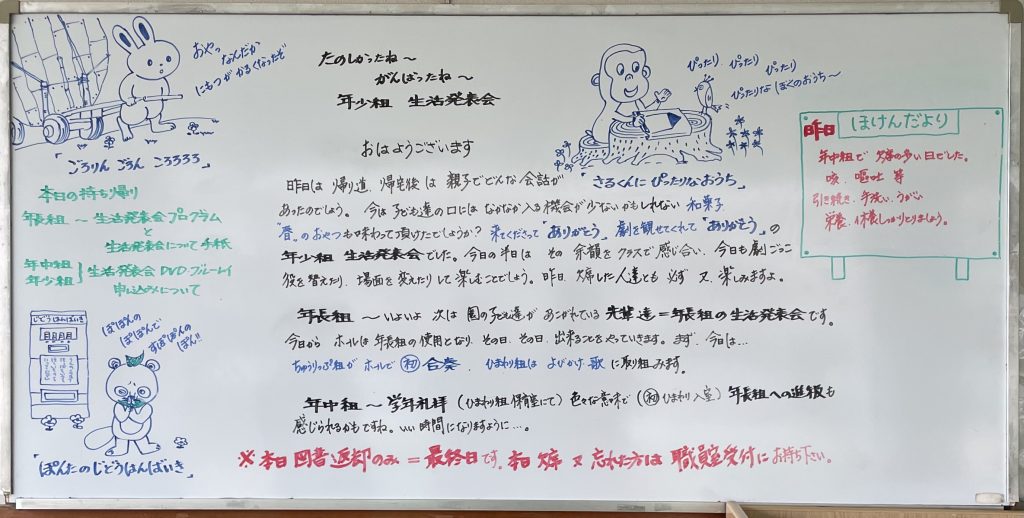 おやっ
なんだか
にもつがかるくなったぞ
「ごろりん ごろん ころろろろ」
たのしかったね~
がんばったね~
年少組 生活発表会
ぴったり ぴったり ぴったり
ぴったりな ぼくのおうち~
「さるくんに ぴったりなおうち」
おはようございます
昨日は 帰り道、帰宅後は 親子でどんな会話が
あったのでしょう。今は子ども達の口には なかなか入る機会が少ないかもしれない 和菓子
"春"のおやつも味わって頂けたでしょうか? 来てくださって「ありがとう」劇を観せてくれて「ありがとう」の
年少組 生活発表会でした。今日の半日は その余韻をクラスで感じ合い、今日も劇ごっこ
役を替えたり、場面を変えたりして楽しむことでしょう。昨日、欠席した人達とも 必ず 又、楽しみますよ。
年長組 ~ いよいよ 次は 園の子ども達が あこがれている 先輩達=年長組の生活発表会です。
今日から ホールは年長の使用となり、その日、その日、出来ることをやっていきます。まず、今日は…
ちゅうりっぷ組が ホールで 初 合奏、ひまわり組は よびかけ・歌 に取り組みます。
年中組 ~ 学年礼拝 (ひまわり組保育室にて) 色々な意味で (初 ひまわり入室) 年長組への進級も
感じられるかもですね。いい時間になりますように…。
※本日 図書返却のみ = 最終日です。本日欠席 又 忘れた方は 職員室受付に お持ち下さい。
昨日 ほけんだより
年中組で 欠席の多い日でした。
咳、嘔吐 等
引き続き、手洗い、うがい
栄養、休養しっかりとりましょう。
本日の持ち帰り
年長組 ~ 生活発表会プログラム
と
生活発表会について 手紙
年中組
年少組
生活発表会 DVD・ブルーレイ
申し込みについて
じどうはんばいき
ぽぽんの
ぽぽんで
すぽぽんの
ぽん!!
「ぽんたのじどうはんばいき」